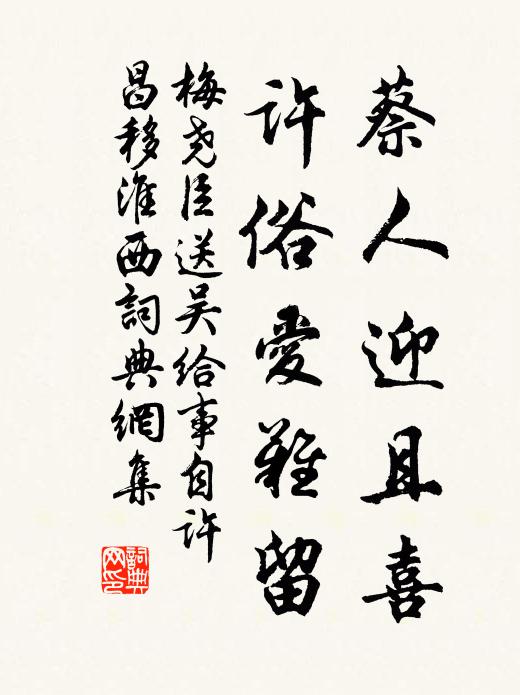 蔡人迎且喜
許俗愛難留
梅尧臣送吴给事自许
昌移淮西詞典網集
詞典
网印